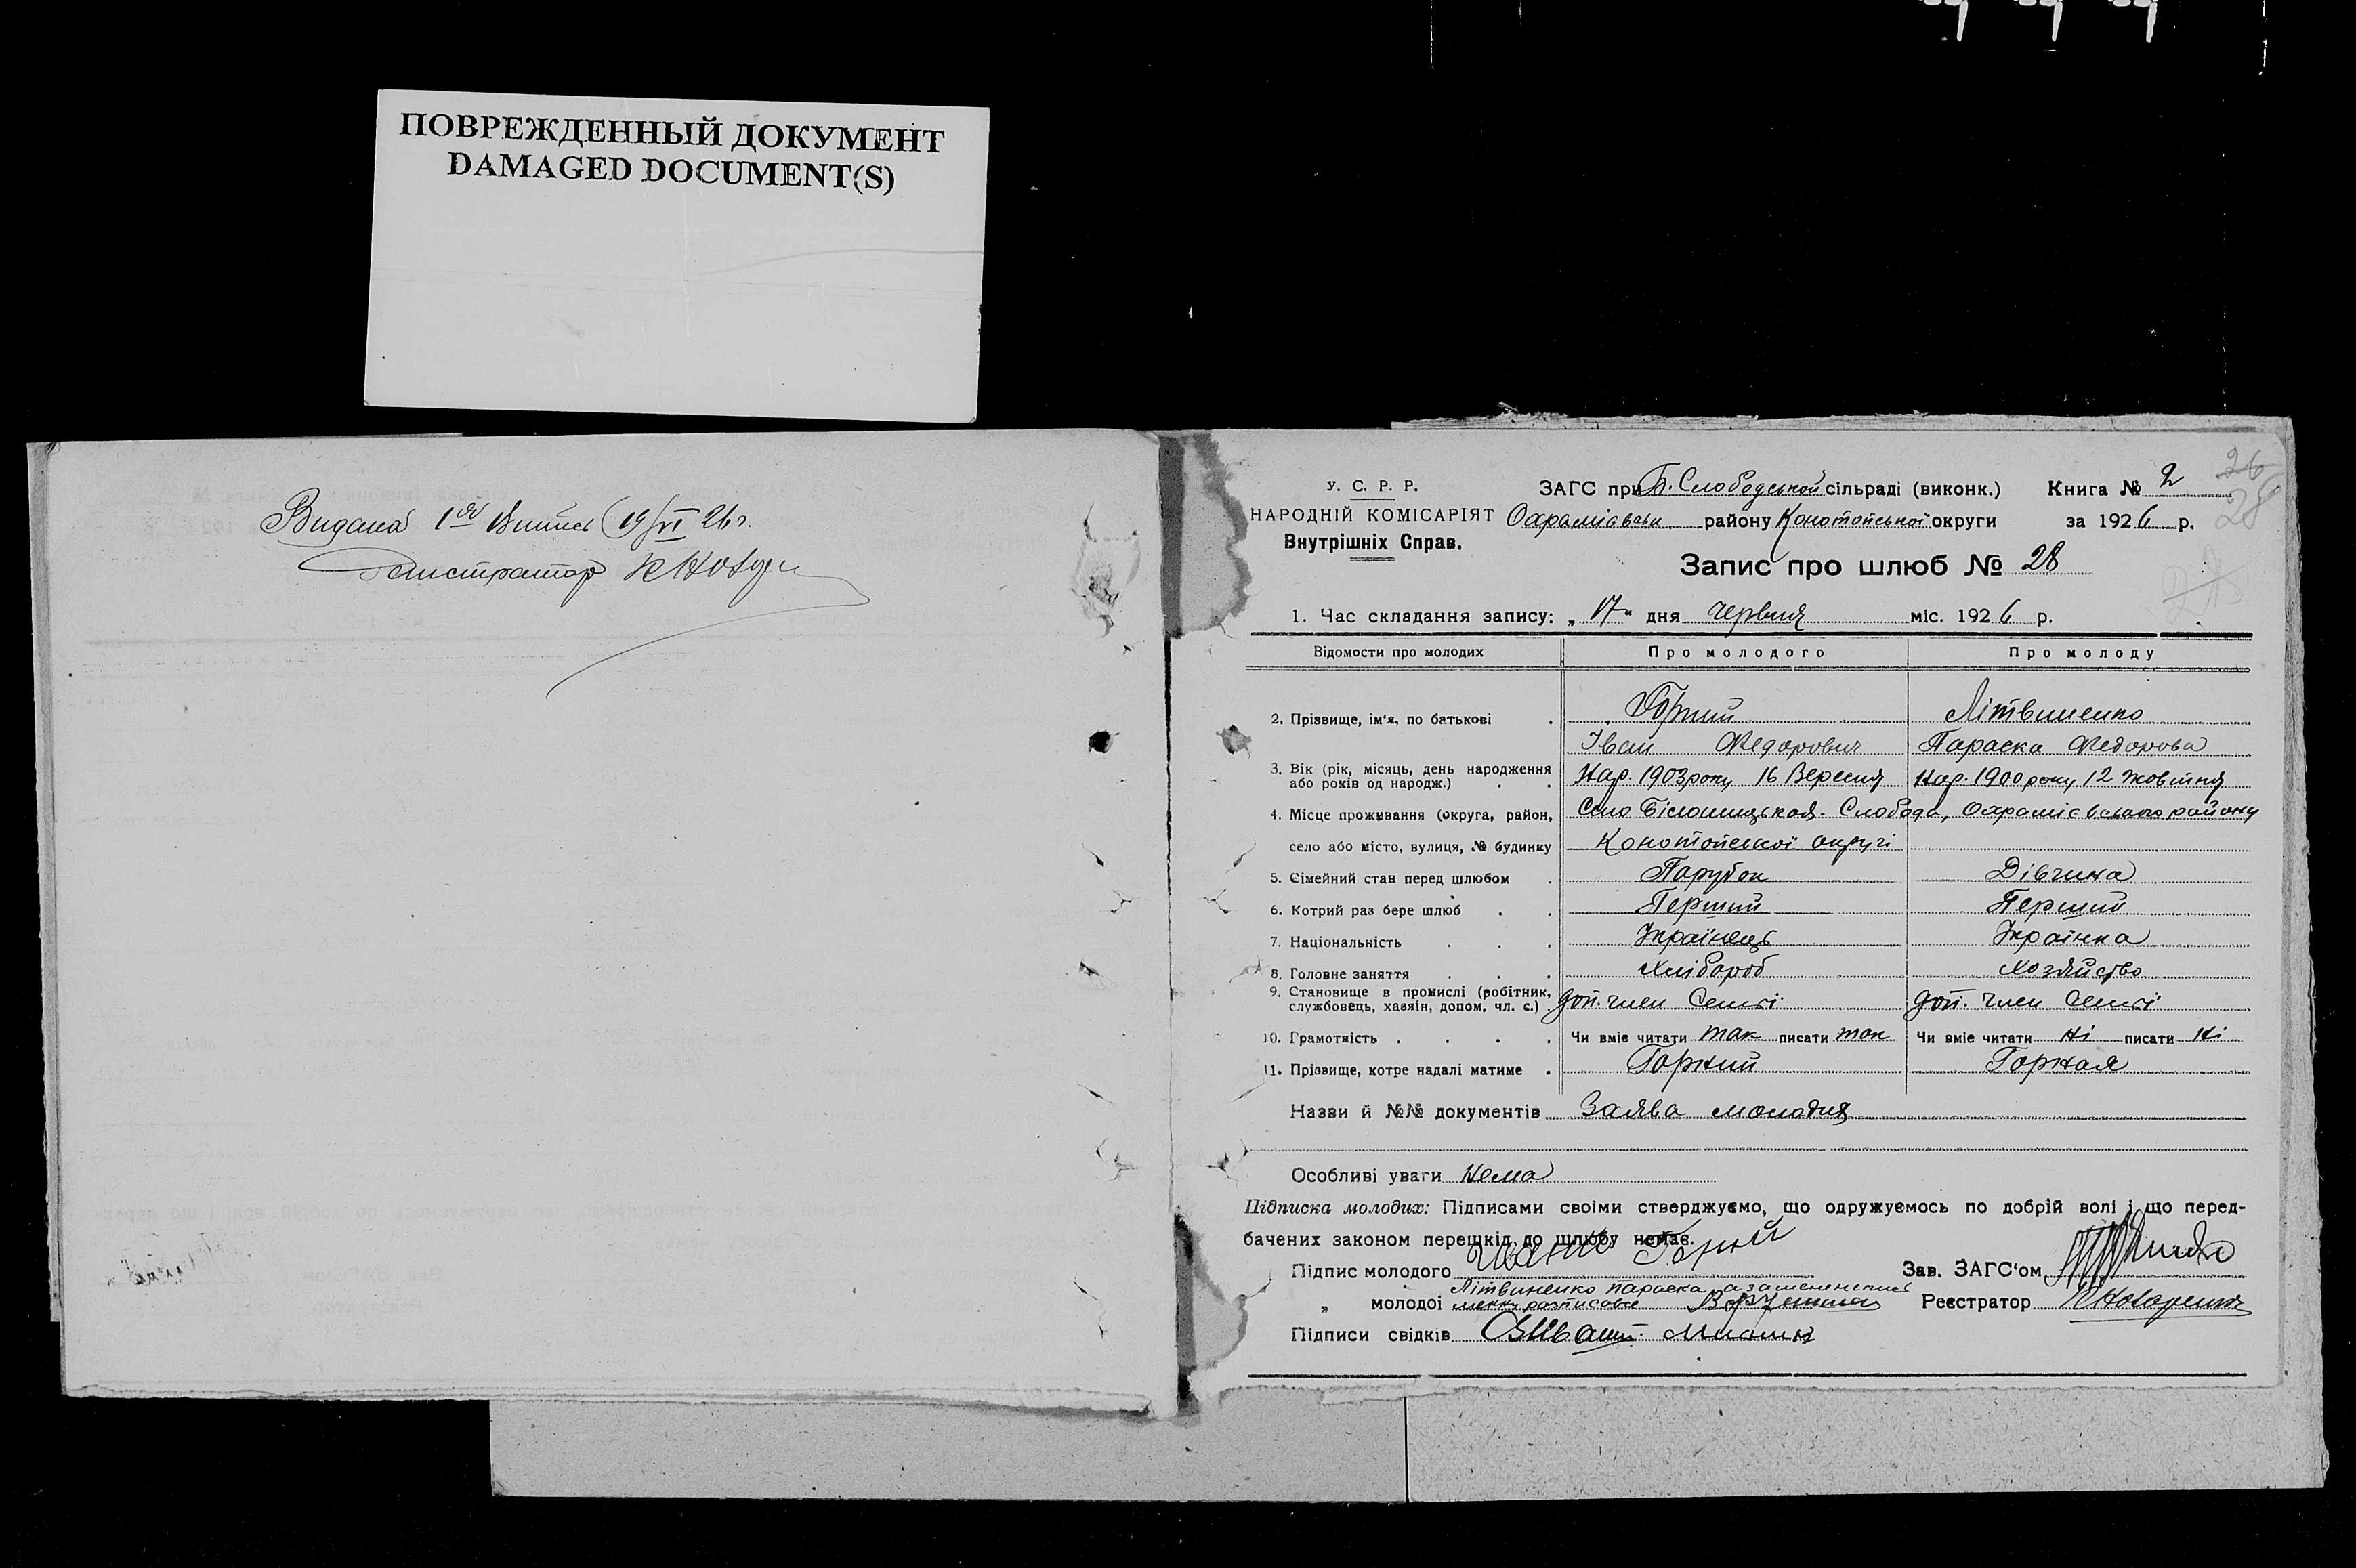 ПОВРЕЖДЕННЫЙ ДОКУМЕНТ
DAMAGED DOCUMENT(S)
Видана 1 Витись 19/VI 26 г.
26
28
У. С. Р. Р.
НАРОДНІЙ КОМІСАРІЯТ
Внутрішніх Справ.
ЗАГС при Б. Слободської сільраді (виконк.) Книга № 2
Охраміївськ району Конотопської округи за 1926 р.
Запис про шлюб № 28
1. Час складання запису: „17“ дня червня міс. 1926 р.
Відомости про молодих Про молодого Про молоду
2. Прізвище, ім'я, по батькові . Горний Літвиненко
Іван Федорович Параска Федорова
3. Вік (рік, місяць, день народження
або років од народж.) . . Нар. 1903 року 16 Вересня Нар. 1900 року, 12 жовтня
4. Місце проживання (округа, район, Село Білошицькая-Слобода, Охрамієвського району
село або місто, вулиця, № будинку Конотопської округі
5. Сімейний стан перед шлюбом . Парубок Дівчина
6. Котрий раз бере шлюб . . Перший Перший
7. Національність . . . Українець Українка
8. Головне заняття . . . Хлібороб Хозяйство
9. Становище в промислі (робітник,
службовець, хазяін, допом. чл. с.) . доп. член Семьї доп. член Семьї
10. Грамотність . . . . Чи вміє читати так писати так Чи вміє читати Ні писати Ні
11. Прізвище, котре надалі матиме . Горний Горная
Назви й №№ документів Заява молодих
Особливі уваги Нема
Підписка молодих: Підписами своїми стверджуємо, що одружуємось по добрій волі і що перед-
бачених законом перешкід до шлюбу немає.
Підпис молодого Горний Зав. ЗАГС'ом
„ молодої Літвиненко Параска а за неписменну розписався Реєстратор
Підписи свідків